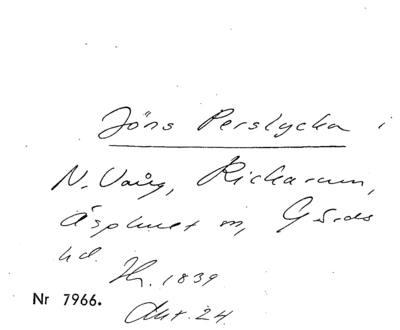 Jöns Perslycka i
N. Vång, Rickarum,
Äsphult sn, Gärds
hd.
Hr. 1839
Nr 7966.
Akt. 24.